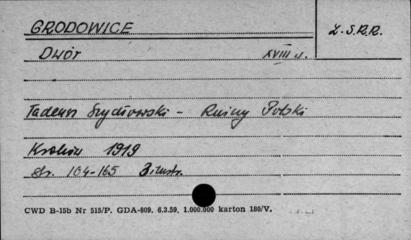 GRODOWICE
Z.S.R.R.
Dwór XVIII w.
Tadeusz Szydłowski - Ruiny Polski
Kraków 1919
str. 164-165 3 ilustr.
CWD B-15b Nr 515/P. GDA-809. 6.3.59. 1.000.000 karton 180/V.